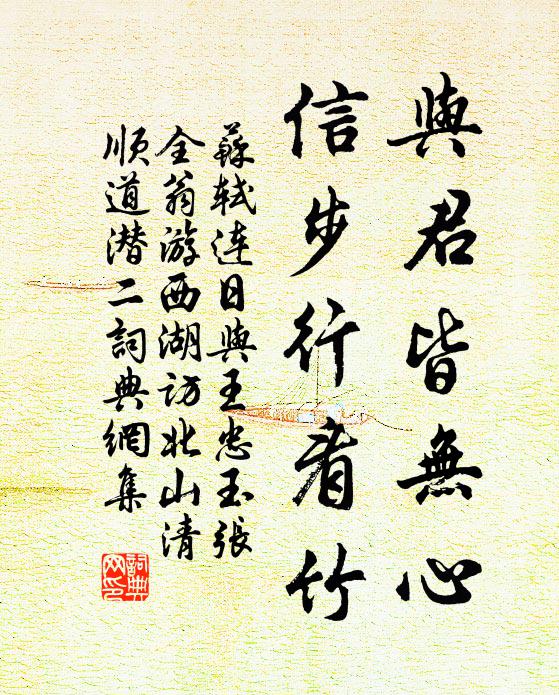 與君皆無心
信步行看竹
蘇軾連日與王忠玉張
全翁游西湖訪北山清
順道潜二詞典網集
詞典
网印